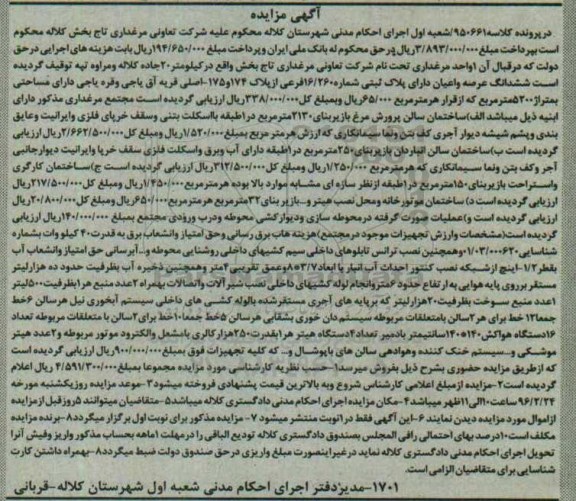 آگهی مزایده
درپرونده کلاسه۹۵۰۶۶۱/شعبه اول اجرای احکام مدنی شهرستان کلاله محکوم علیه شرکت تعاونی مرغداری تاج بخش کلاله محکوم
است بپرداخت مبلغ ۳/۸۹۳/۰۰۰/۰۰۰ریال درحق محکوم له بانک ملی ایران وپرداخت مبلغ ۱۹۴/۶۵۰/۰۰۰ریال بابت هزینه های اجرایی درحق
دولت که درقبال آن ۱واحد مرغداری تحت نام شرکت تعاونی مرغداری تاج بخش واقع درکیلومتر۲۰جاده کلاله ومراوه تپه توقیف گردیده
است ششدانگ عرصه واعیان دارای پلاک ثبتی شماره۱۶/۲۶۰فرعی ازپلاک ۱۷۴و۱۷۵-اصلی قریه آق یاجی وقره یاجی دارای مساحتی
بمتراژ۵۲۰۰مترمربع که ازقرار هرمترمربع ۶۵/۰۰۰ریال وبمبلغ کل۳۳۸/۰۰۰/۰۰۰ریال ارزیابی گردیده است مجتمع مرغداری مذکور دارای
ابنیه ذیل میباشد الف)ساختمان سالن پرورش مرغ بازیربنای۲۱۳۰مترمربع در۱طبقه بااسکلت بتنی وسقف خرپای فلزی وایرانیت وعایق
بندی وپشم شیشه دیوار آجری کف بتن ونما سیمانکاری که ارزش هرمتر مربع بمبلغ۱/۵۲۰/۰۰۰ریال ومبلغ کل۲/۶۶۲/۵۰۰/۰۰۰ریال ارزیابی
گردیده است ب)ساختمان سالن انباردان بازیربنای۲۵۰مترمربع در۱طبقه دارای آب وبرق واسکلت فلزی سقف خرپا وایرانیت دیوارجانبی
آجر وکف بتن ونما سیمانکاری که هرمترمربع ۱/۲۵۰/۰۰۰ریال ومبلغ کل۳۱۲/۵۰۰/۰۰۰ریال ارزیابی گردیده است ج)ساختمان کارگری
واستراحت بازیربنای۱۵۰مترمربع در۱طبقه ازنظر سازه ای مشابه موارد بالا بوده هرمترمربع۱/۴۵۰/۰۰۰ریال ومبلغ کل۲۱۷/۵۰۰/۰۰۰ریال
ارزیابی گردیده است د) ساختمان موتورخانه ومحل نصب هیتر و..بازیربنای۳۲مترمربع هرمترمربع۶۵۰/۰۰۰ریال ومبلغ کل۲۰/۸۰۰/۰۰۰ریال
ارزیابی گردیده است و)عملیات صورت گرفته درمحوطه سازی ودیوارکشی محوطه ودرب ورودی مجتمع بمبلغ ۱۴۰/۰۰۰/۰۰۰ریال ارزیابی
گردیده است(مشخصات وارزش تجهیزات موجود درمجتمع) هزینه هاب برق رسانی وحق امتیاز وانشعاب برق به قدرت۴۰ کیلو وات بشماره
شناسایی۰۱/۰۳/۰۰۰۶۲۰وهمچنین نصب ترانس تابلوهای داخلی سیم کشیهای داخلی روشنایی محوطه و..آبرسانی حق امتیاز وانشعاب آب
بقطر۱/۲-اینچ ازشبکه نصب کنتور احداث آب انبار با ابعاد۳/۷×۵و عمق تقریبی ۲متر و همچنین ذخیره آب بظرفیت حدود ده هزارلیتر
مستقر برروی پایه هوایی به ارتفاع حدود ۶متروانجام لوله کشیهای داخلی نصب شیرآلات واتصالات بهمراه ۲عدد منبع هر۱بظرفیت۵۰۰لیتر
۱عدد منبع سوخت بظرفیت۲۰هزارلیتر که برپایه های آجری مستقرشده بالوله کشی های داخلی سیستم آبخوری نیل هرسالن ۶خط
جمعا۱۲ خط برای هر۲سالن بامتعلقات مربوطه سیستم دان خوری بشقابی هرسالن ۵خط جمعا۱۰خط برای۲سالن با متعلقات مربوطه تعداد
۱۶دستگاه هواکش۱۴۰*۱۴۰سانتیمتر بادمپر تعداد۴دستگاه هیتر هر۱بقدرت۲۵۰هزارکالری بامشعل والکترود موتور مربوطه و۲عدد هیتر
موشکی و..سیستم خنک کننده وهوادهی سالن های باپوشال و.. که کلیه تجهیزات فوق بمبلغ۹۰۰/۰۰۰/۰۰۰ریال ارزیابی گردیده است
که ازطریق مزایده حضوری بشرح ذیل بفروش میرسد۱-حسب نظریه کارشناسی مورد مزایده مجموعا بمبلغ۴/۵۹۱/۳۰۰/۰۰۰ ریال اعلام
گردیده است۲-مزایده ازمبلغ اعلامی کارشناس شروع وبه بالاترین قیمت پیشنهادی فروخته میشود۳-موعد مزایده روزیکشنبه مورخه
۹۶/۲/۲۴ ساعت۱۰الی۱۱ظهر میباشد۴-مکان مزایده اجرای احکام مدنی دادگستری کلاله میباشد۵-متقاضیان میتوانند ۵روزقبل ازمزایده
ازاموال مورد مزایده دیدن نمایند ۶-این آگهی فقط در۱نوبت منتشر میشود ۷-مزایده مذکور برای نوبت اول برگزار میگردد۸-برنده مزایده
مکلف است ۱۰درصد بهای احتمالی رافی المجلس بصندوق دادگستری کلاله تودیع الباقی را درمهلت ۱ماهه بحساب مذکور واریز وفیش آنرا
تحویل اجرای احکام مدنی دادگستری کلاله نماید درغیراینصورت مبلغ واریزی درحق صندوق دولت ضبط میگردد۸-بهمراه داشتن کارت
شناسایی برای متقاضیان الزامی است.
۱۷۰۱-مدیردفتر اجرای احکام مدنی شعبه اول شهرستان کلاله-قربانی